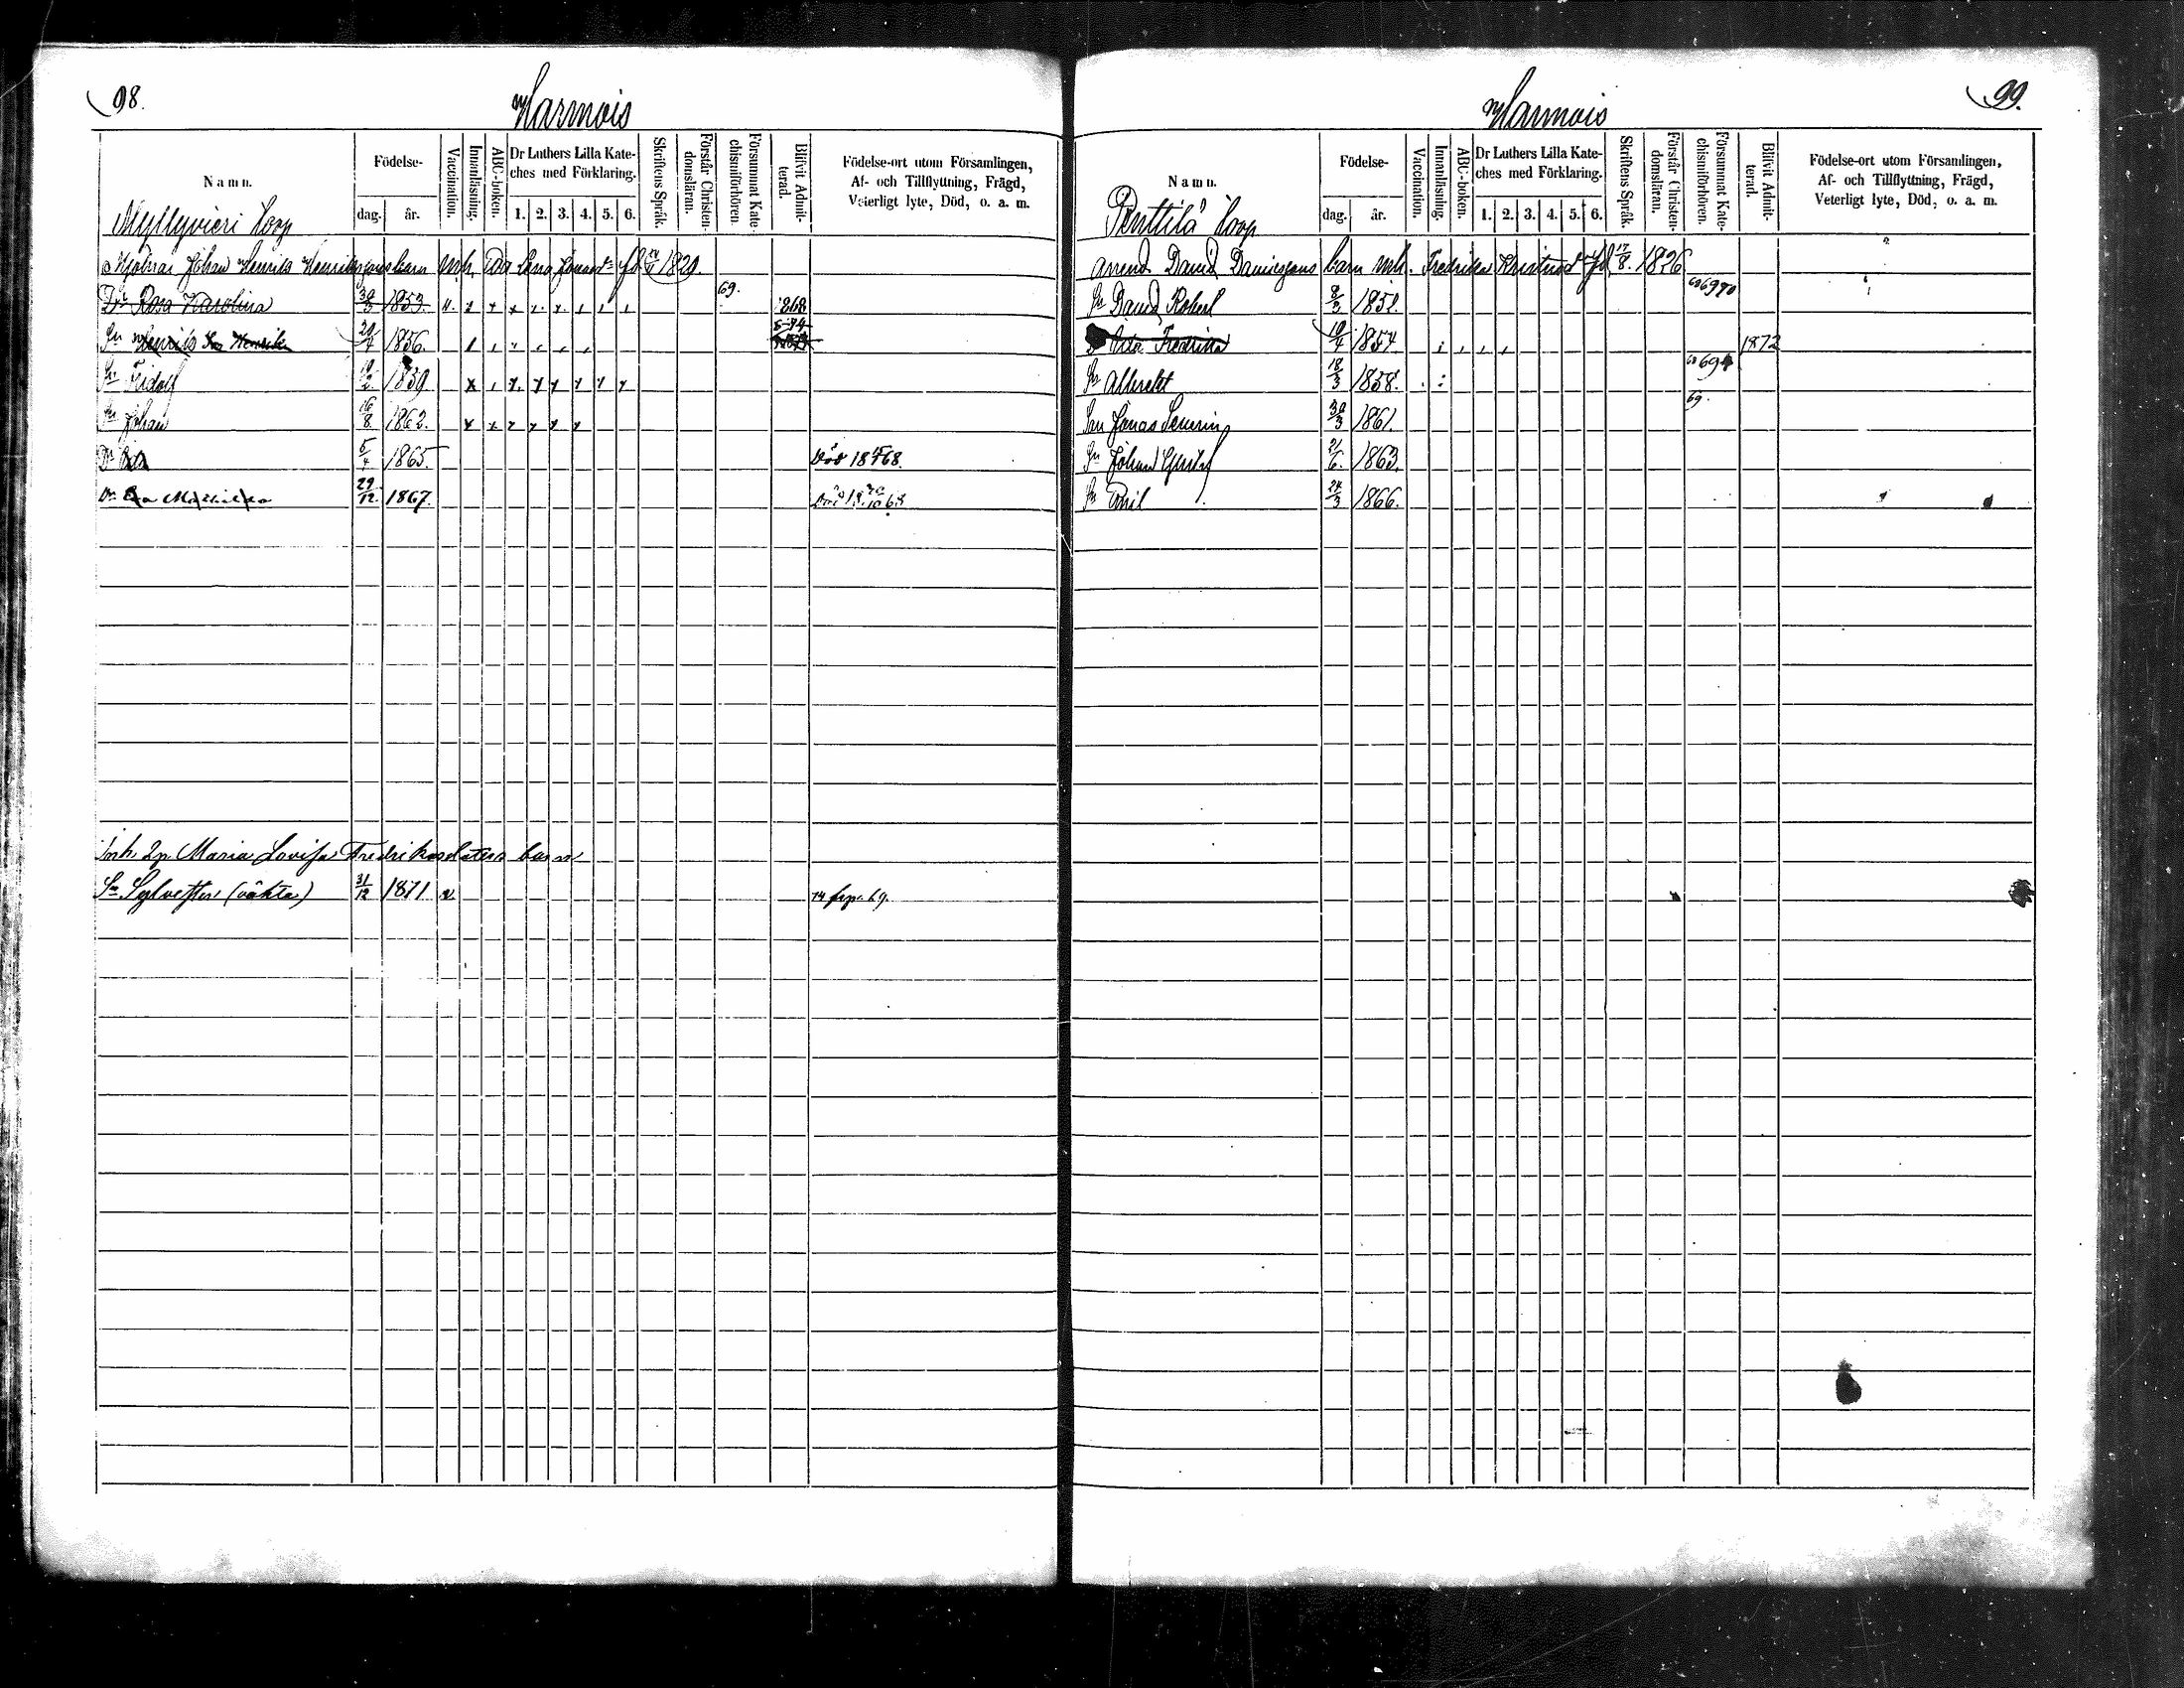 98.
Harmois
Namn.
Födelse-
dag.
år.
Vaccination.
Innanläsning.
ABC-boken.
Dr Luthers Lilla Kate-
ches med Förklaring.
1. 2. 3. 4. 5. 6.
Skriftens Språk.
Förstår Christen-
domsläran.
Försummat Kate-
chismiförhören.
Blifvit Admit-
terad.
Födelse-ort utom Församlingen,
Af- och Tillflyttning, Frägd,
Veterligt lyte, Död, o. a. m.
Myllyvieri torp
Mjölnar Johan Henriks Henrikssons barn mh. Eva Lena Jonasdr fd 1820.
Dr Rosa Karolina 30/3 1853. v. 69. 1868
Sn Henrik 20/4 1856.
Sn Fridolf 1859
Sn Johan 16/8 1862.
Dr 5/4 1865. Död 1868.
Dr Eva Mathilda 29/12 1867. Död
Inh. Maria Lovisa Fredriksdotters barn
Sn Sylvester (oäkta) 31/12 1871 v.
99.
Harmois
Namn.
Födelse-
dag.
år.
Vaccination.
Innanläsning.
ABC-boken.
Dr Luthers Lilla Kate-
ches med Förklaring.
1. 2. 3. 4. 5. 6.
Skriftens Språk.
Förstår Christen-
domsläran.
Försummat Kate-
chismiförhören.
Blifvit Admit-
terad.
Födelse-ort utom Församlingen,
Af- och Tillflyttning, Frägd,
Veterligt lyte, Död, o. a. m.
Penttilä torp
Arrend. David Davidssons barn mh. Fredrika Kristina fd 17/8. 1826
Sn David Robert 8/3 1851.
Fredrika 19/4 1854 1872
Sn Albrekt 18/3 1858.
Son Jonas Severin 30/3 1861. 69.
Sn Johan Gustaf 21/6. 1863.
Sn Emil 24/3 1866.